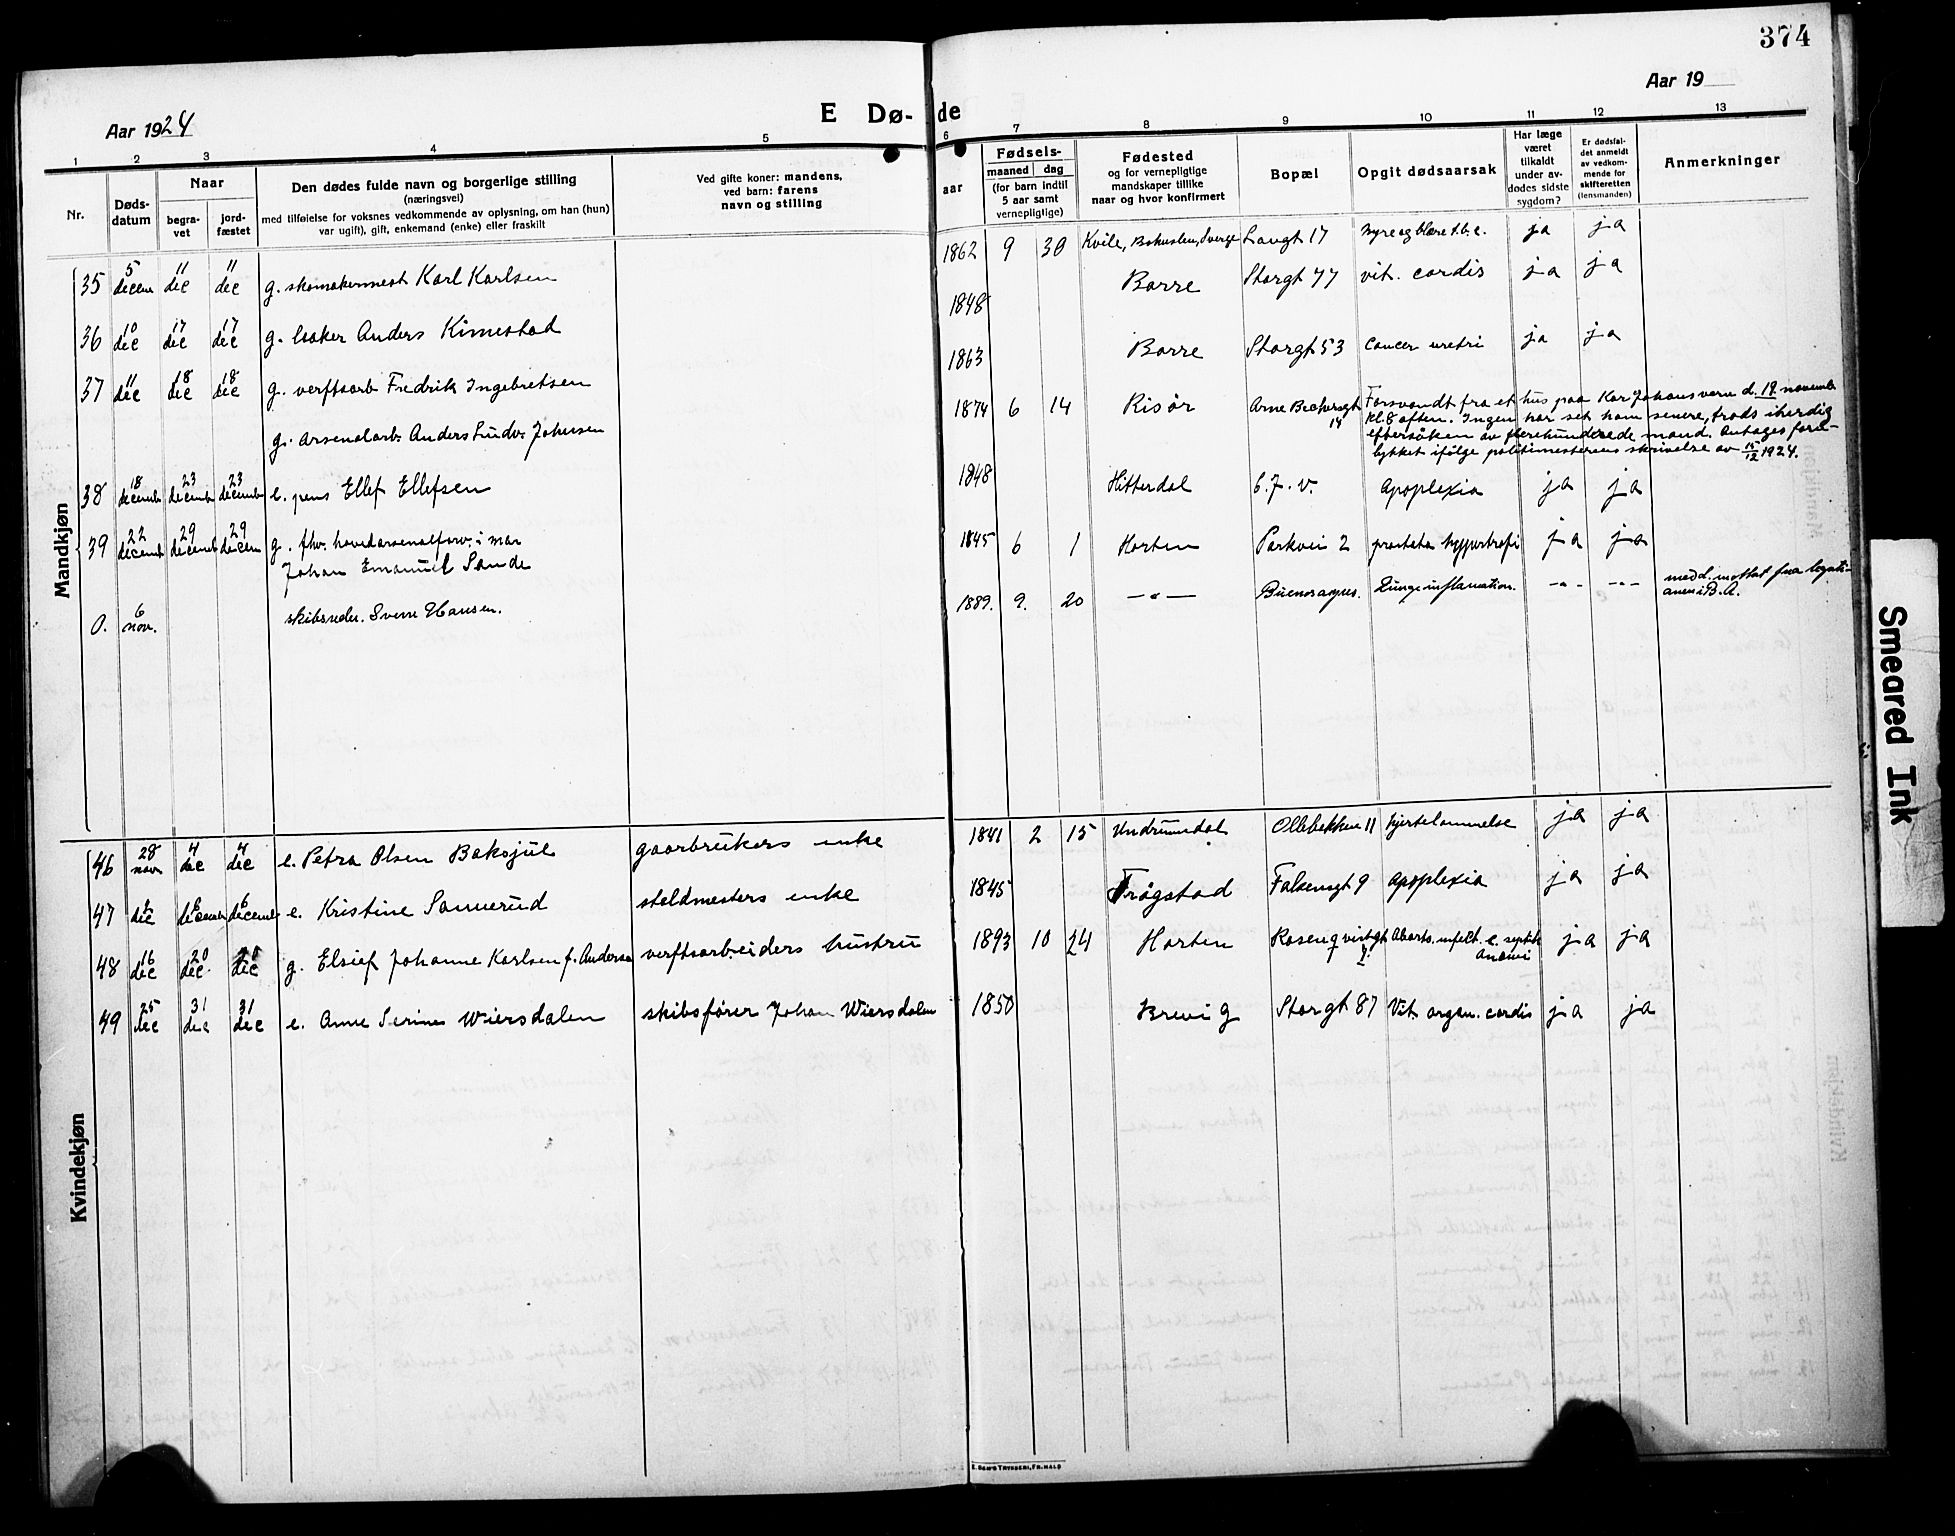 374
Aar 1924
E Dø-
de
Aar 19
1 2 3 4 5 6 7 8 9 10 11 12 13
Nr.
Døds-
datum
Naar
begra-
vet
jord-
fæstet
Den dødes fulde navn og borgerlige stilling
(næringsvei)
med tilføielse for voksnes vedkommende av oplysning, om han (hun)
var ugift), gift, enkemand (enke) eller fraskilt
Ved gifte koner: mandens,
ved barn: farens
navn og stilling
aar
Fødsels-
maaned dag
(for barn indtil
5 aar samt
vernepligtige)
Fødested
og for vernepligtige
mandskaper tillike
naar og hvor konfirmert
Bopæl
Opgit dødsaarsak
Har læge
været
tilkaldt
under av-
dødes sidste
sygdom?
Er dødsfal-
det anmeldt
av vedkom-
mende for
skifteretten
(lensmanden)
Anmerkninger
Mandkjøn
35 5 decem 11 dec 11 dec g. skomakermest Karl Karlsen 1862 9 30 Kville, Bohuslen, Sverge Langt 17 nyre og blære t.b.c. ja ja
36 10 dec 17 dec 17 dec g. baker Anders Kimestad 1848 Borre Storgt 77 vit. cordis ja ja
37 11 dec 18 dec 18 dec g. verftsarb Fredrik Ingebretsen 1863 Borre Storgt 53 cancer uretri ja ja
g. arsenalarb. Anders Ludv. Johnsen 1874 6 14 Risør Arne Bechersgt 14 Forsvandt fra et hus paa Karljohansvern d. 18 novemb
kl. 8 aften. Ingen har set ham senere, trods iherdig
eftersöken av flerehundrede mand. Antages foru-
lykket ifölge politimesterens skrivelse av 15/12 1924.
38 18 decemb 23 decemb 23 decemb e. pens Ellef Ellefsen 1848 Hitterdal 6. J. V. Apoplexia ja ja
39 22 decemb 29 decemb 29 decem g. fhv. hovedarsenalforv. i mar
Johan Emanuel Sande 1845 6 1 Horten Parkvei 2 prostata hyppertrofi ja ja
0. 6 nov. skibsreder. Sverre Hansen. 1889. 9. 20 — " — Buenos ayres. Lungeinflamation. - " - - " - medd. mottat fra legati-
onen i B. A.
Kvindekjøn
46 28 nov 4 dec 4 dec e. Petra Olsen Baksjul gaarbrukers enke 1841 2 15 Undrumdal Ollebekken 11 hjertelammelse ja ja
47 2 dec 6 decemb 6 decemb e. Kristine Sannerud staldmesters enke 1845 Trögstad Falsensgt 9 apoplexia ja ja
48 16 dec 20 dec 20 dec g. Elsief Johanne Karlsen f. Anderse verftsarbeiders hustru 1893 10 24 Horten Rosenqvistgt 2 Aborts. infekt. c. septik
Anämi ja ja
49 25 dec 31 dec 31 dec e. Anne Serine Wiersdalen skibsförer Johan Wiersdalen 1850 Brevig Storgt 87 Vit. organ. cordis ja ja
Smeared Ink